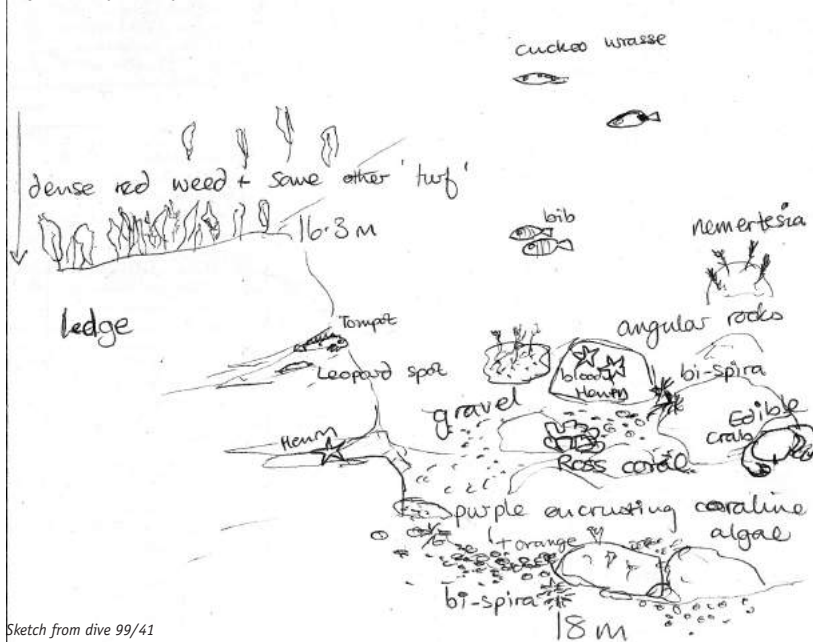 cuckoo wrasse
dense red weed + some other 'turf'
16.3 m
bib
nemertesia
ledge
Tompot
angular rocks
Leopard spot
bloody
Henry
bi-spira
gravel
Edible
crab
Henry
Ross coral
purple encrusting coraline
algae
+ orange
bi-spira
18 m
Sketch from dive 99/41